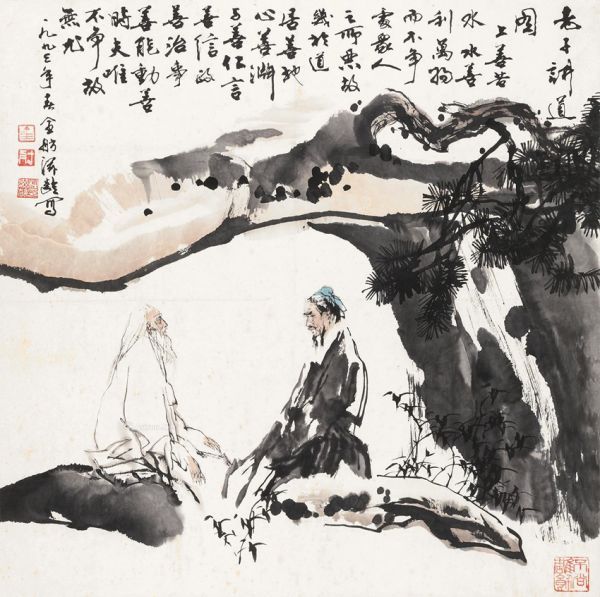 老子講道
圖
上善若
水水善
利萬物
而不争
處衆人
之所惡故
幾於道
居善地
心善淵
予善仁言
善信政
善治事
善能動善
時夫唯
不争故
無尤
一九九三年春金舫寫